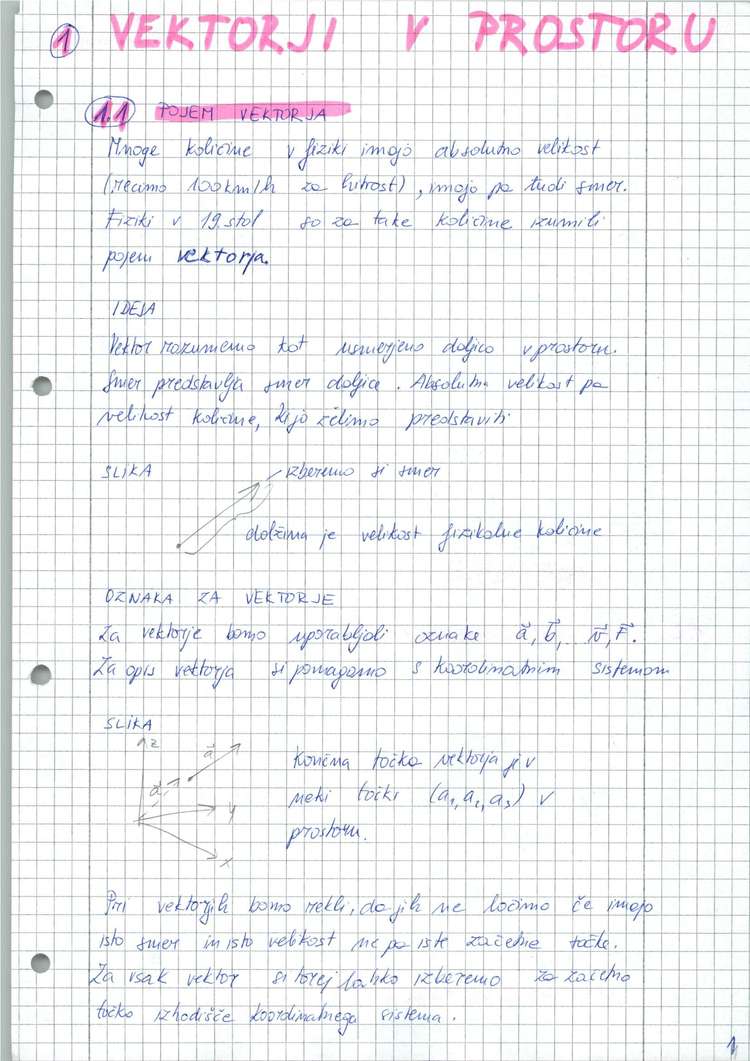 1 VEKTORJI V PROSTORU
1.1 POJEM VEKTORJA
Mnoge količine v fiziki imajo absolutno velikost
(recimo 100km/h za hitrost), imajo pa tudi smer.
Fiziki v 19.stol so za take količine izumili
pojem vektorja.
IDEJA
Vektor razumemo kot usmerjeno daljico v prostoru.
Smer predstavlja smer daljice. Absolutna velikost pa
velikost količine, ki jo želimo predstaviti
SLIKA
izberemo si smer
dolžina je velikost fizikalne količine
OZNAKA ZA VEKTORJE
Za vektorje bomo uporabljali oznake a⃗, b⃗, ... v⃗, F⃗.
Za opis vektorja si pomagamo s koordinatnim sistemom
SLIKA
z
a⃗
a⃗
y
x
Končna točka vektorja je v
neki točki (a₁, a₂, a₃) v
prostoru.
Pri vektorjih bomo rekli, da jih ne ločimo če imajo
isto smer in isto velikost ne pa iste začetne točke.
Za vsak vektor si torej lahko izberemo za začetno
točko izhodišče koordinatnega sistema.
1